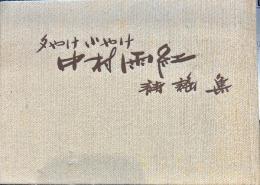 夕やけ小やけ
中村雨紅
詩謡集